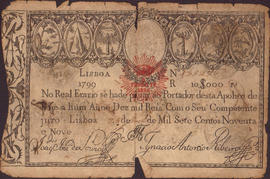 LISBOA N
1799 R 10$000 r
No Real Erario se hade pagar ao Portador desta Apolice de
oje a hum Anno Dez mil Reis Com o Seu Competente
juro Lisboa 2 de de Mil Sete Centos Noventa
e Nove
Ignacio Antonio Ribeiro